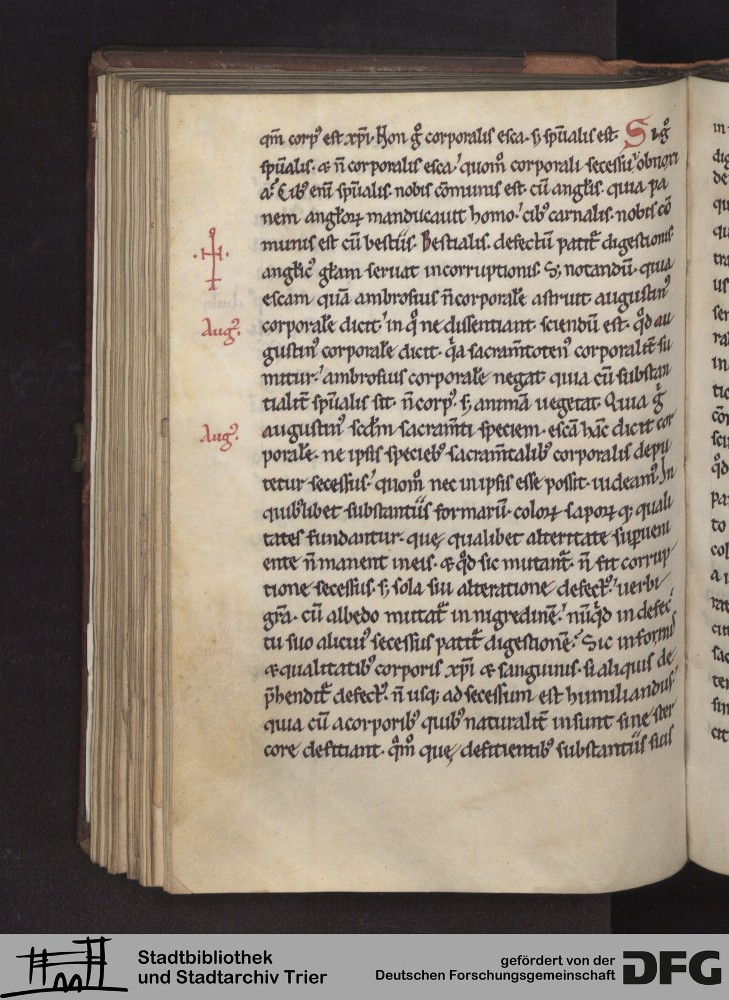 qm̄ corp᷒ est xp̄i. Non g̊ corporalis esca. s; sp̄ualis est. Si g̊
sp̄ualis. & n̄ corporalis esca. quom̊ corporali secessui obnoxi
a? Cib᷒ eni᷒ sp̄ualis. nobis cōmunis est cū angłis. quia pa
nem angłoꝝ manducauit homo. cib᷒ carnalis. nobis cō
munis est cū bestiis. Bestialis. defectū patit᷑ digestionis.
anglic᷒ głam seruat incorruptionis. S; notandū. quia
escam quā ambrosius n̄ corporałe astruit augustin᷒
Aug᷒.
corporałe dicit. in q̊ ne dissentiant. sciendū est. qd̄ au
gustin᷒ corporałe dicit. q̄a sacram̄toten᷒ corporalit̄ su
mitur. ambrosius corporałe negat. quia cū substan
tialit̄ sp̄ualis sit. n̄ corp᷒. s; animā uegetat. Quia g̊
Aug᷒.
augustin᷒ scdm̄ sacram̄ti speciem. escā hāc dicit cor
porałe. ne ipsis specieb᷒ sacram̄talib᷒ corporalis depu
tetur secessus. quom̊ nec in ipsis esse possit. uideam᷒. In
quib᷒libet substantiis formarū. coloꝝ saporꝝ q; quali
tates fundantur. quę qualibet alteritate supueni
ente n̄ manent in eis. & qd̄ sic mutant᷑. n̄ fit corrup
tione secessus. s; sola sui alteratione defect᷒. uerbi
gr̄a. cū albedo mutat᷑ in nigredinē. nūqd̄ in defec
tu suo alicui᷒ secessus patit᷑ digestionē? Sic in formis
& qualitatib᷒ corporis xp̄i & sanguinis. si aliquis de
p̄hendit᷑ defect᷒. n̄ usq; ad secessum est humiliandus.
quia cū a corporib᷒ quib᷒ naturalit̄ insunt sine ster
core defitiant. qm̊ quę defitientib᷒ substantiis suis
Stadtbibliothek
und Stadtarchiv Trier
gefördert von der
Deutschen Forschungsgemeinschaft
DFG